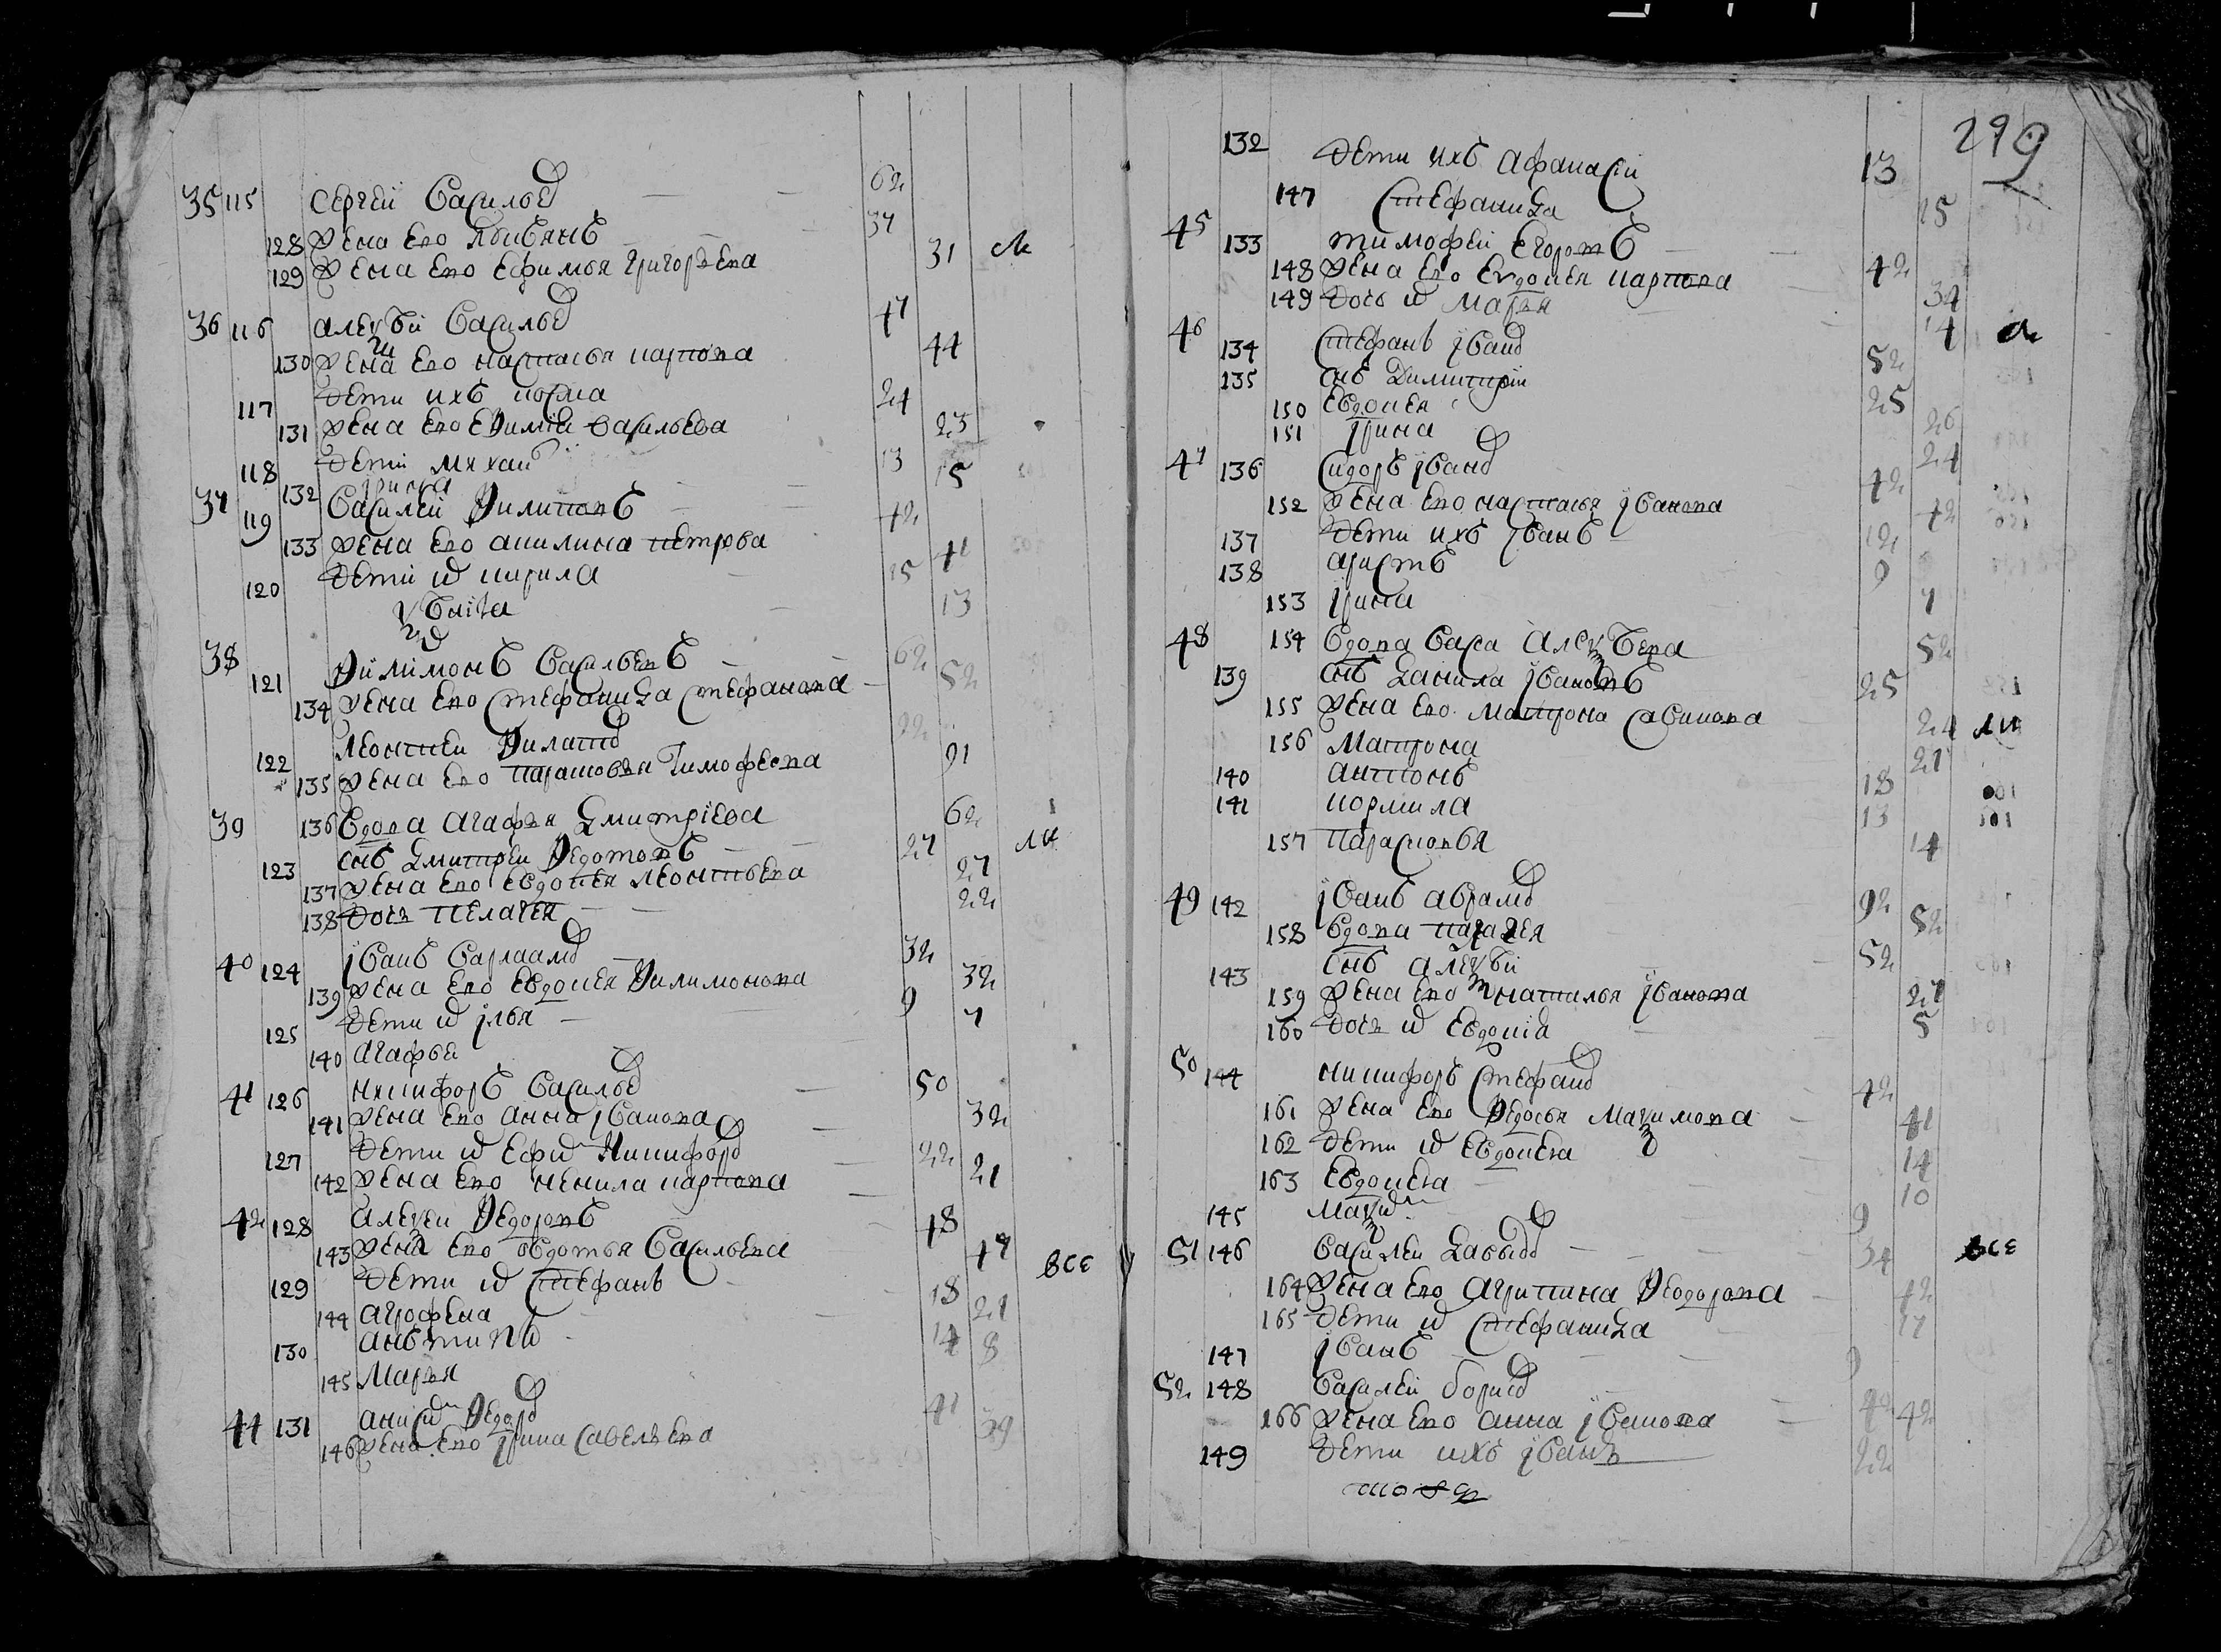 35 115 Сергей Василев 62
128 жена его 37
129 жена его Ефимья Григорьева 31
36 116 Алеѯѣй Василев 47
130 жена его Настасья Карпова 44
117 дети ихъ Козма 24
131 жена его Ефимия Васильева 23
118 дети Михаи 13
132 Ірина 15
37 119 Василей Филиповъ 42
133 жена его Акилина Петрова 41
120 дети ѿ Кирила 15
13
38 121 Филімонъ Васильевъ 62
134 жена его Стефанида Стефанова 52
122 Леонтией 22
135 жена его Парасковья Тимофеева 91
39 136 вдова Агафья Дмитріева 62
123 снъ Дмитрей Федотовъ 27
137 жена его Евдокея Леонтьева 27
138 дочь Пелагея 22
40 124 Іванъ Варлаамо 32
139 жена его Евдокея Филимонова 32
125 дети ѿ Ілья 9
140 Агафья 7
41 126 Никифоръ Василев 50
141 жена его Анна Іванова 32
127 дети ѿ Ефи Никифоро 22
142 жена его Ненила Карпова 21
42 128 Алеѯей Федоровъ 48
143 жена его Федотья Васильева 47 все
129 дети ѿ Стефанъ 18
144 Агрофена 21
130 Анътипъ 14
145 Марья 8
44 131 Аниси Федоро 41
146 жена его Ірина Савельева 39
299
132 дети ихъ Афанасіи 13
147 Стефанида 15
45 133 Тимофей Егоровъ 42
148 жена его Евдокея Карпова 34
149 дочь ѿ Марья 14
46 134 Стефанъ Івано 52
135 снъ Димитрій 25
150 Евдокея 26
151 Ірина 24
47 136 Сидоръ Івано 42
152 жена его Настасья Іванова 42
137 дети ихъ Іванъ 12
138 9
153 Ірина 7
48 154 вдова Васа Алеѯѣева 52
139 снъ Данила Івановъ 25
155 жена его Матрона Савинова 24
156 Матрона 21
140 Антонъ 18
141 Кормила 13
157 Парасковья 14
49 142 Іванъ Аврамо 92
158 вдова 52
143 снъ Алеѯѣй 52
159 жена его Наталья Іванова 27
160 дочь ѿ Евдокіа 5
50 144 Никифоръ Стефано 42
161 жена его Федосья Маѯимова 41
162 дети ѿ Евдокея 14
163 Евдокея 10
145 Маѯи 9
51 146 Василей Давыдо 34 все
164 жена его Агрипина Феодорова 42
165 дети ѿ Стефанида 17
147 Іванъ 9
52 148 Василей Борисо
166 жена его Анна Іванова 42
149 дети ихъ Іванъ 22